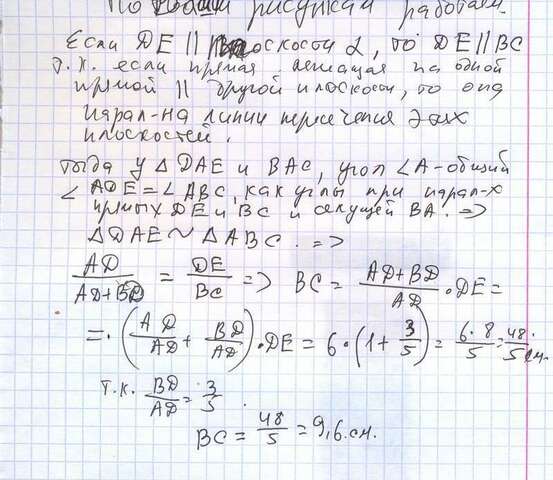 По рисункам работаем.
Если DE || плоскости α, то DE || BC
т.к. если прямая лежащая на одной
прямой || другой плоскости, то она
парал-на линии пересечения этих
плоскостей.
тогда у ΔDAE и BAC, угол ∠A-общий
∠ADE=∠ABC, как углы при парал-х
прямых DE и BC и секущей BA. =>
ΔDAE ~ ΔABC. =>
AD/(AD+BD) = DE/BC => BC = (AD+BD)/AD · DE =
=·(AD/AD + BD/AD)·DE = 6·(1+3/5) = 6·8/5 = 48/5 см.
т.к. BD/AD = 3/5
BC = 48/5 = 9,6 см.